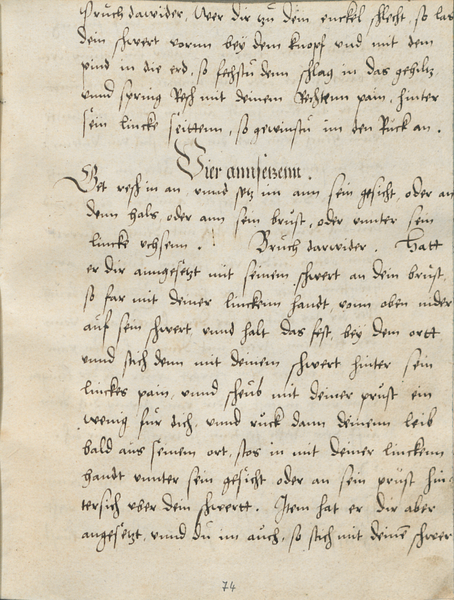 Bruch darwider. Wer dir zu dem enckel schlecht, so las
dein schwert vornn bey dem knopf vnd mit dem
pind in die erd, so fechstu denn schlag in das gehiltz
vnnd spring Resch mit deinem Rechtenn pain, hinter
sein lincke seittenn, so gewinstu im den Ruck an.
Vier annsetzenn.
Get resch in an vnnd setz im ann sein gesicht, oder an
denn hals, oder ann sein brust, oder vnnter sein
lincke vchsenn. Bruch darwider. Hatt
er dir anngesetzt mit seinem schwert an dein brust,
so far mit deiner linckenn handt vonn oben nider
auf sein schwert vnnd halt das fest, bey dem ortt
vnnd stich denn mit deinem schwert hinter sein
linckes pain, vnnd scheub mit deiner prust ein
wenig für dich, vnnd ruck dann deinenn leib
bald aus seinem ort, stos in mit deiner linckenn
handt vnnter sein gesicht oder an sein prust hin-
tersich vber dem schwertt. Item hat er dir aber
angesetzt, vnnd du im auch, so stich mit deinē schwer
74